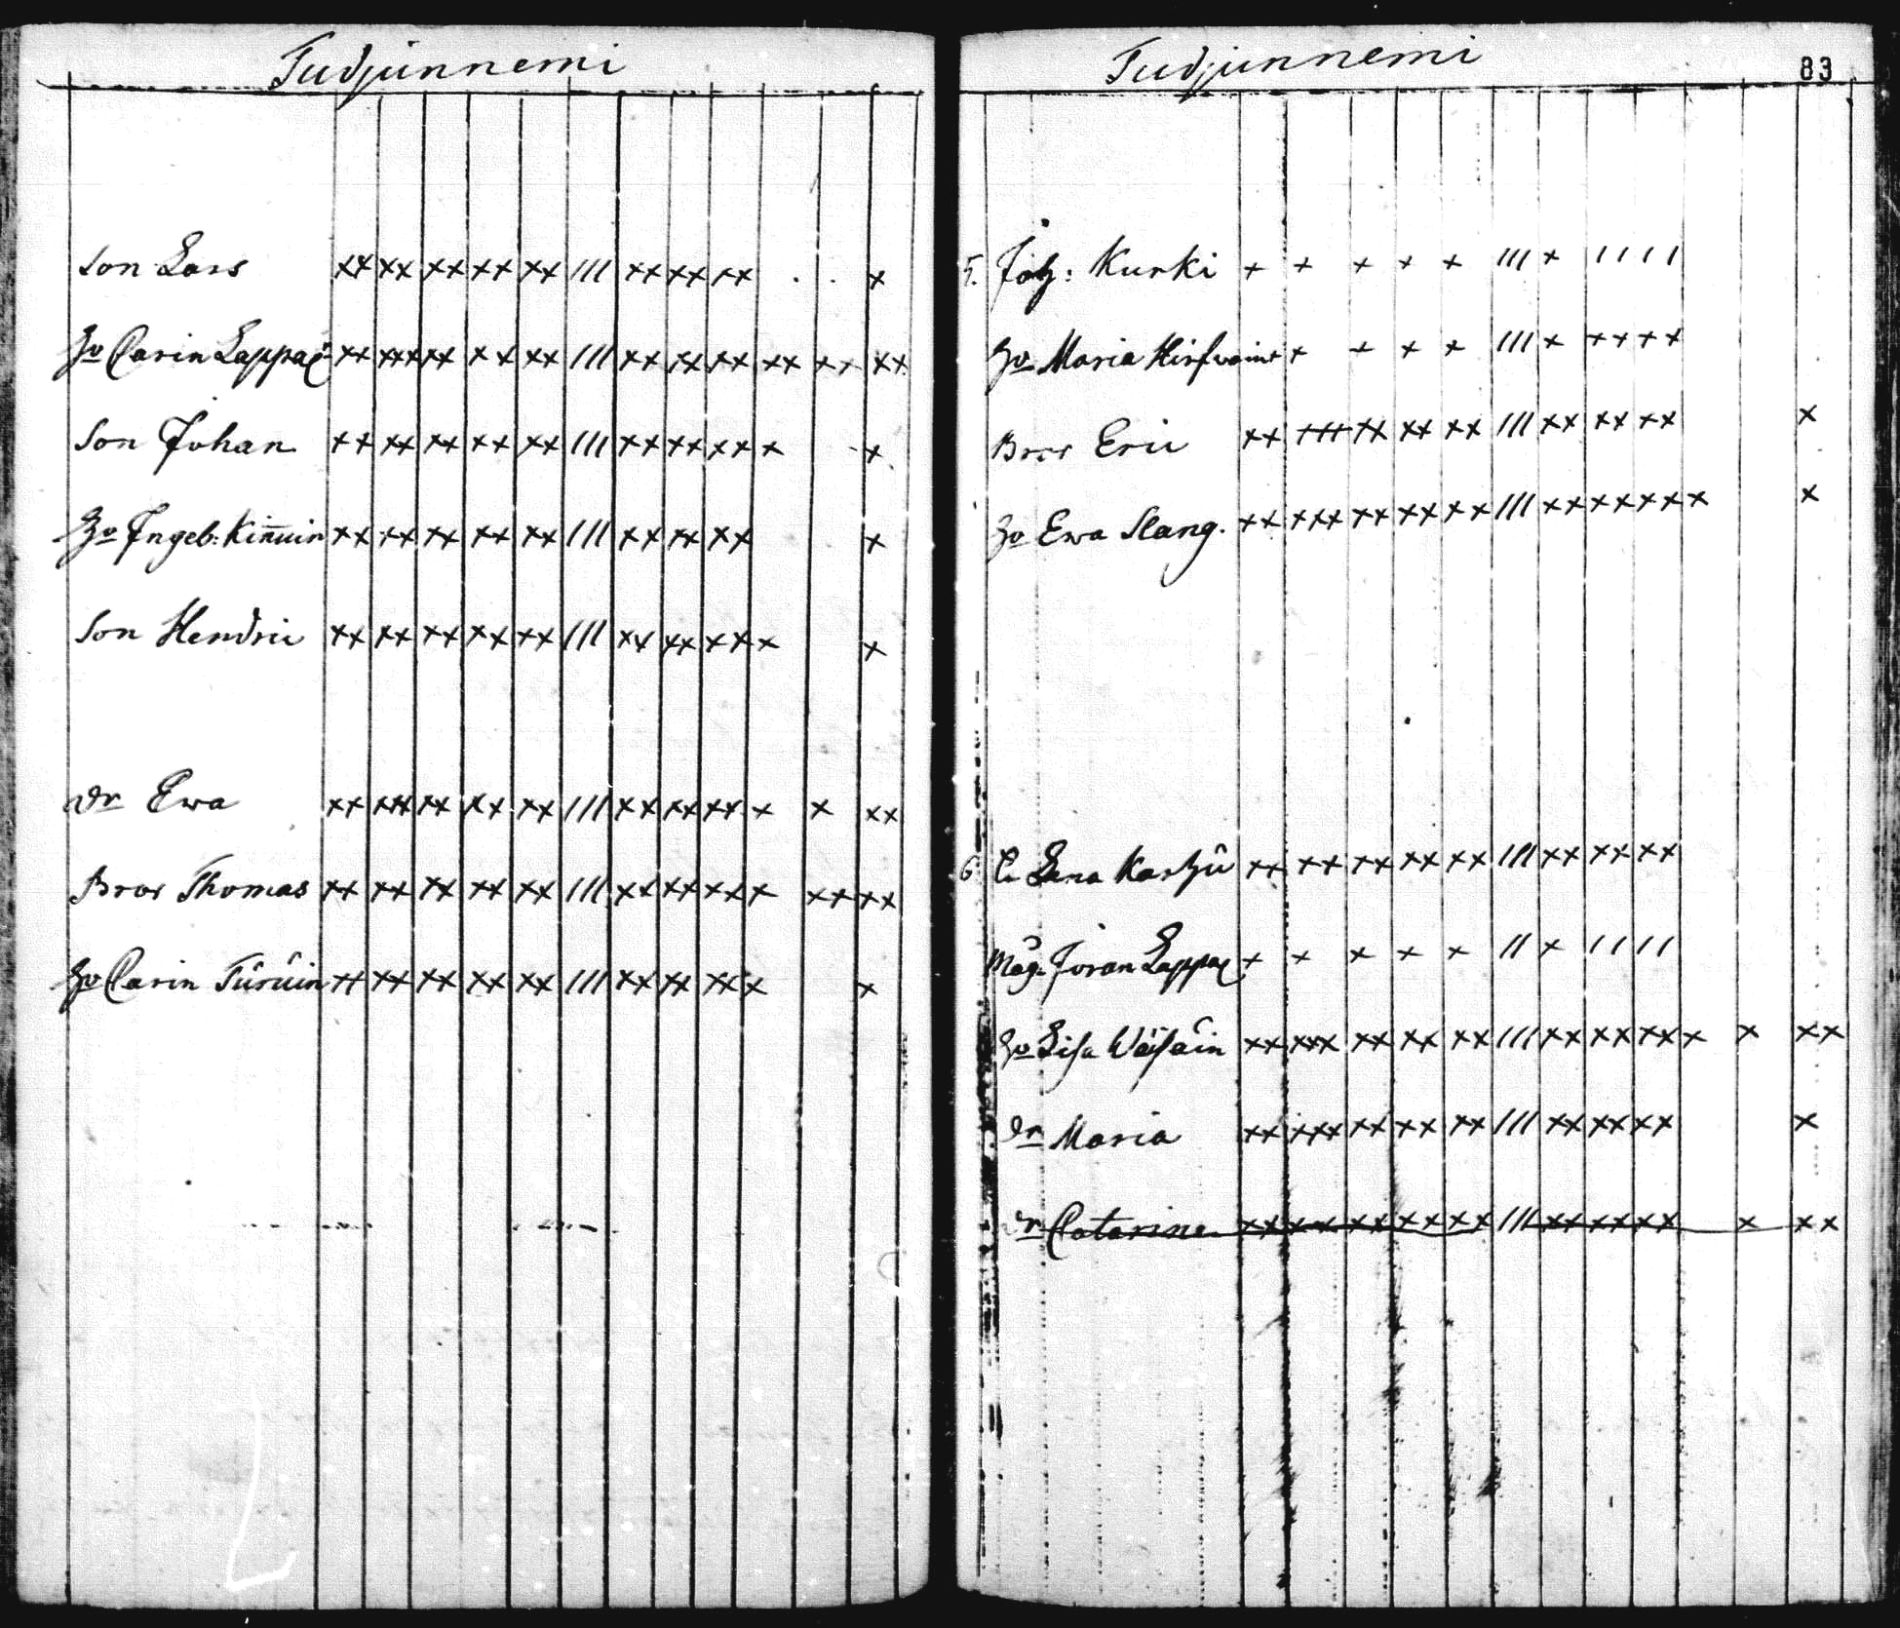 Tudjunnemi
Son Lars xx xx xx xx xx III xx xx xx . . x
Ho Carin Lappaĩ xx xxx xx xx xx III xx xx xx xx xx xx
Son Johan xx xx xx xx xx III xx xx xx x x
Ho Ingeb: Kinnuin xx xx xx xx xx III xx xx xx x
Son Hendric xx xx xx xx xx III xx xx xx x x
Dr Ewa xx xxx xx xx xx III xx xx xx x x xx
Bror Thomas xx xx xx xx xx III xx xx xx x xx xx
Ho Carin Turuin xx xx xx xx xx III xx xx xx x x
Tudjunnemi 83
5. Joh: Kurki + + + + + III + I I I I
Ho Maria Hirfvoin + + + + + III + + + + +
Bror Eric xx xxx xx xx xx III xx xx xx x
Ho Ewa Slang. xx xxx xx xx xx III xx xx xx x x
6 Lena Karhu xx xx xx xx xx III xx xx xx
Måg. Jöran Lappaĩ + + + + + II + I I I I
Ho Lisa Wäisäin xx xxx xx xx xx III xx xx xx x x xx
Dr Maria xx xxx xx xx xx III xx xx xx x
Dr Catarina xx xx xx xx xx III xx xx xx x xx